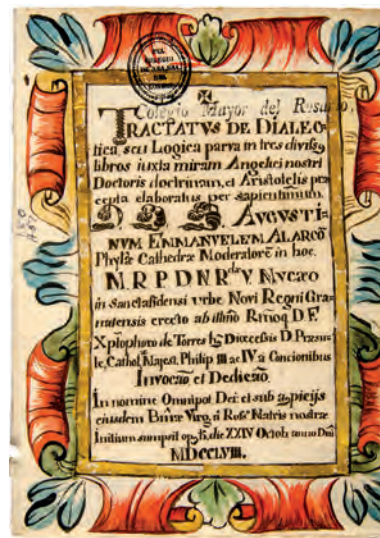 Colegio Mayor del Rosario,
TRACTATVS DE DIALEC-
tica, seu Logica parva in tres divisg
libros iuxta miram Angelici nostri
Doctoris doctrinam, et Aristotelis præ
cepta elaboratus per sapientimum.
D. D. D. AVGVSTI-
NVM EMMANVELEM ALARCŌ
Phyłæ Cathedræ Moderatorē in hoc
M. R. P. D. N. R. V. NVCÆO
in Sanctafidensi vrbe Novi Regni Gra-
natensis erecto ab illmo Rmoq D. F.
Xptophoro de Torres Diœcesis D. Præsu-
le, Cathol. Majest. Philip III ac IV a Concionibus
Invocao et Dedicao.
In nomine Omnipot Dei: et sub auspicijs
eiusdem Virg. a Ros. Matris nostræ
Initium sumpsit die XXIV Octob anno Dni
MDCCLVIII.